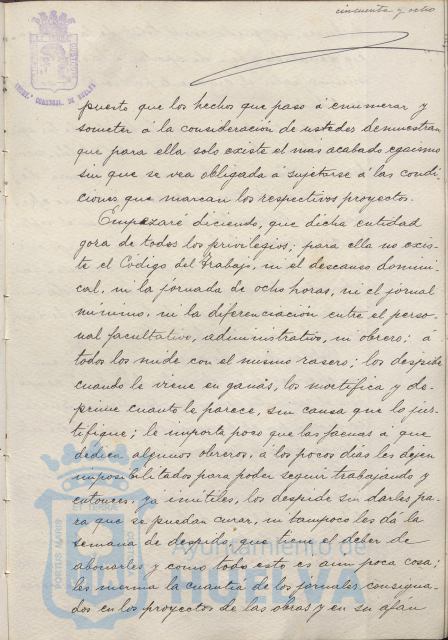 cincuenta y ocho
puesto que los hechos que paso á enumerar y
someter á la consideración de ustedes demuestran
que para ella solo existe el mas acabado egoismo
sin que se vea obligada á sujetarse á las condi-
ciones que marcan los respectivos proyectos.
Empezaré diciendo, que dicha entidad
goza de todos los privilegios; para ella no exis-
te el Código del Trabajo, ni el descanso domini-
cal, ni la jornada de ocho horas, ni el jornal
mínimo, ni la diferenciación entre el perso-
nal facultativo, administrativo, ni obrero; á
todos los mide con el mismo rasero; los despide
cuando le viene en ganas, los mortifica y de-
prime cuanto le parece, sin causa que lo jus-
tifique; le importa poco que las faenas á que
dedica algunos obreros, á los pocos dias les dejen
imposibilitados para poder seguir trabajando y
entonces, ya inútiles, los despide sin darles pa-
ra que se puedan curar, ni tampoco les dá la
semana de despido, que tiene el deber de
abonarles y como todo esto es aun poca cosa;
les merma la cuantía de los jornales consigna-
dos en los proyectos de las obras y en su afán
Ayuntamiento de
HUELVA
PORTUS MARIS
ET TERRAE